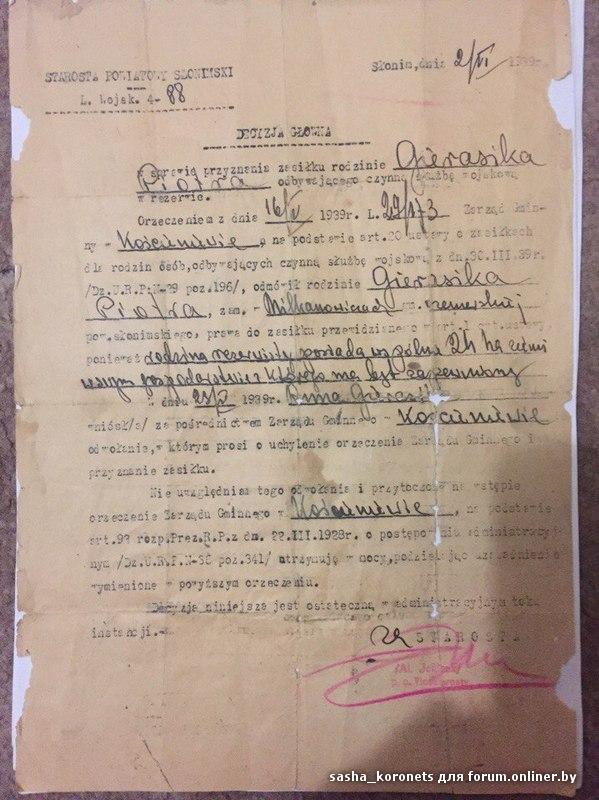 Słonim, dnia 2/VI 1939r.
STAROSTA POWIATOWY SŁONIMSKI
L. Wojsk. 4-88
DECYZJA GŁÓWNA
W sprawie przyznania zasiłku rodzinie Gierasika
Piotra odbywającego czynną służbę wojskową
w rezerwie.
Orzeczeniem z dnia 16/V 1939r. L. Zarząd Gmin-
ny - Kościeniewie, na podstawie art.20 ustawy o zasiłkach
dla rodzin osób, odbywających czynną służbę wojskową z dn.30.III.39r.
/Dz.U.R.P.N-29 poz.196/, odmówił rodzinie Gierasika
Piotra, zam. - Milkanowiczach gm.
pow.słonimskiego, prawa do zasiłku przewidzianego
ponieważ rodzina rezerwisty posiada 24 ha ziemi
ma być zapewniony
W dniu 1939r. Gieras
wniósł/a/ za pośrednictwem Zarządu Gminnego - Kościeniewie
odwołanie, w którym prosi o uchylenie orzeczenia Zarządu Gminnego i
przyznanie zasiłku.
Nie uwzględniam tego odwołania i przytoczone na wstępie
orzeczenie Zarządu Gminnego w Kościeniewie, na podstawie
art.93 rozp.Prez.R.P.z dn.22.III.1928r. o postępowaniu administracyj-
nym /Dz.U.R.P.N-36 poz.341/ utrzymuję w mocy, podzielając uzasadnienie
wymienione w powyższym orzeczeniu.
Decyzja niniejsza jest ostateczną w administracyjnym toku
instancji.-
za STAROSTA
p. o. Wicestarosty
sasha_koronets для forum.onliner.by